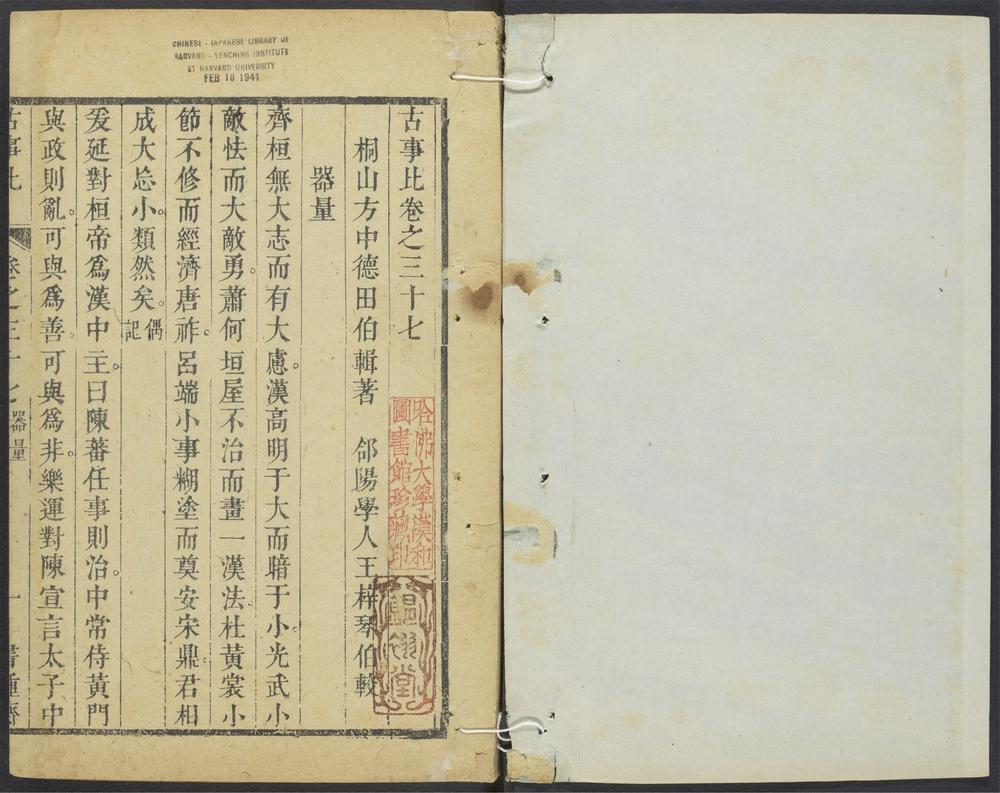 CHINESE - JAPANESE LIBRARY OF
HARVARD - YENCHING INSTITUTE
AT HARVARD UNIVERSITY
FEB 18 1941
古事比卷之三十七
桐山方中德田伯輯著 郃陽學人王梓琴伯較
器量
齊桓無大志而有大慮。漢高明于大而暗于小。光武小
敵怯而大敵勇。蕭何垣屋不治而畫一漢法。杜黃裳小
節不修而經濟唐祚。呂端小事糊塗而奠安宋鼎。君相
成大忌小。類然矣。偶記
爰延對桓帝爲漢中主。曰陳蕃任事則治。中常侍黃門
與政則亂。可與爲善。可與爲非。樂運對陳宣言太子中
古事比 卷之三十七 器量 一 書種齋
哈佛大學漢和
圖書館珍藏印